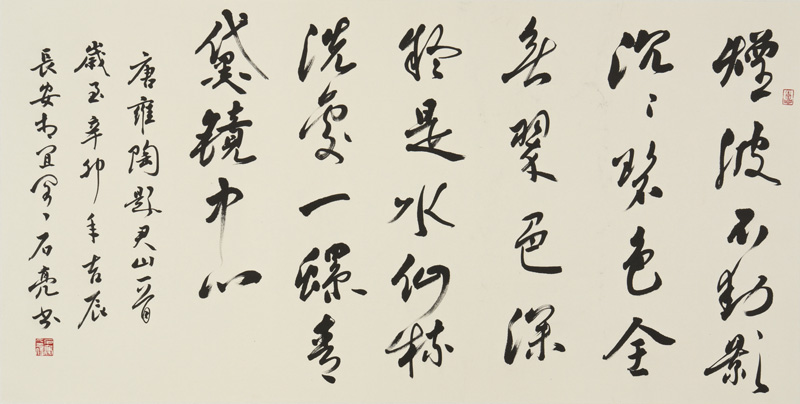 煙波不動影
沉〻碧色全
無翠色深
疑是水仙梳
洗處一螺青
黛鏡中心
唐雍陶題君山一首
歲至辛卯年吉辰
長安 宜 石亮書